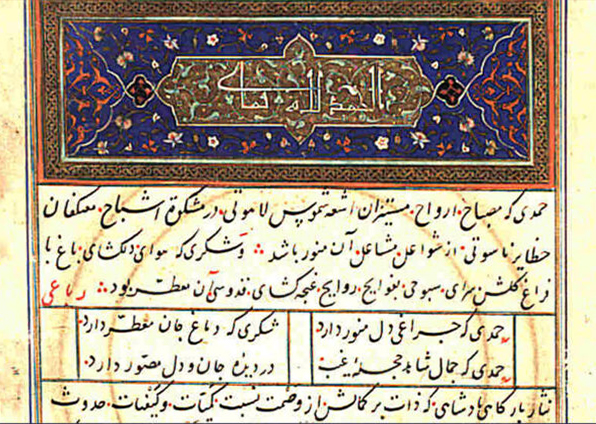 الحمد لله
حمدی که مصباح ارواح مستنیران اشعه شموس لاهوتی در مشکوة اشباح معتکفان
حظایر ناسوتی از شواعل مشاعل آن منور باشد و شکری که هوای دلکشای باغ با
فراغ گلشن سرای سبوحی بفوایح روایح غنچه کشای قدوسی آن معطر بود رباعی
حمدی که چراغ دل منور دارد شکری که دماغ جان معطر دارد
حمدی که جمال شاهد حجله غیب در دیده جان و دل مصور دارد
نثار بارگاه پادشاهی که ذات بر کمالش از وصمت نسبت کمیات و کیفیات حدوث